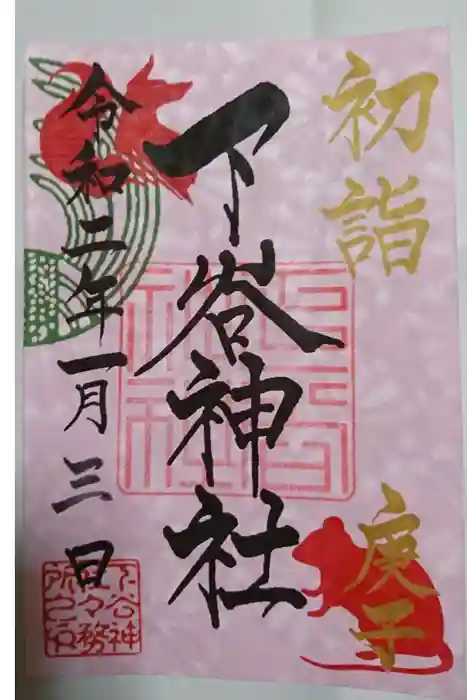 初詣
庚子
下谷神社
令和二年一月三日
下谷神社
下谷神
社々務
所之印